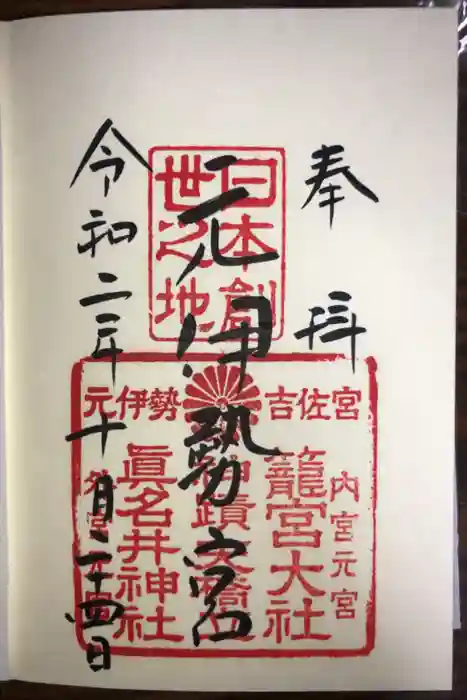 奉拝
日本創
世之地
元伊勢宮
吉佐宮
元伊勢
内宮元宮
籠宮大社
神蹟天橋立
眞名井神社
外宮元宮
令和二年十月二十四日